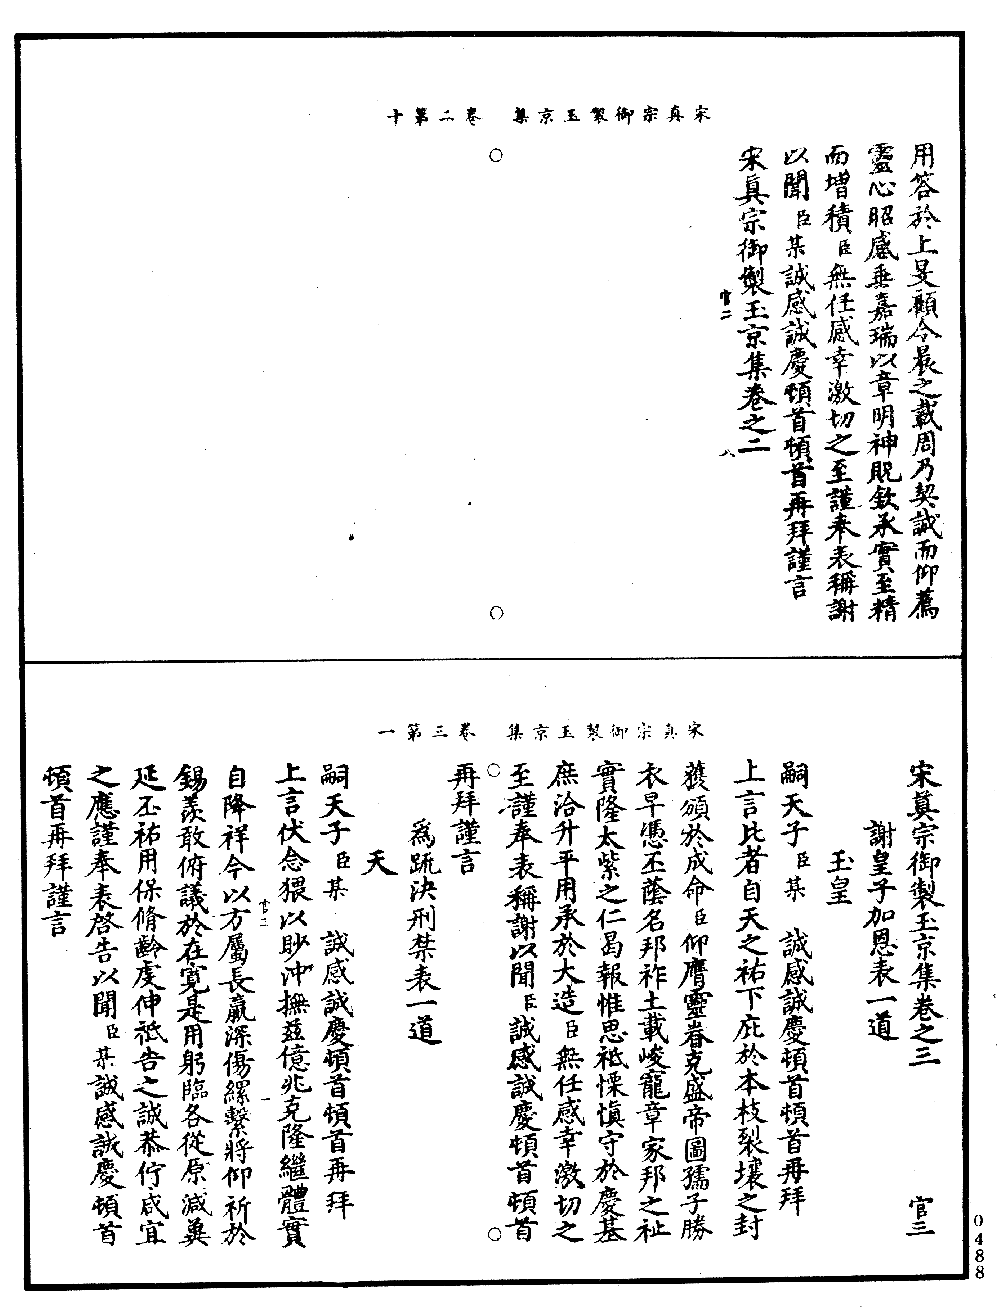 宋真宗御製玉京集　卷二第十
用答於上旻顧今晨之載周乃契誠而仰薦
靈心昭感垂嘉瑞以章明神貺欽承實至精
而增積臣無任感幸激切之至謹奉表稱謝
以聞臣某誠感誠慶頓首頓首再拜謹言
宋真宗御製玉京集卷之二
官二　八
宋真宗御製玉京集　卷三第一
宋真宗御製玉京集卷之三　官三
謝皇子加恩表一道
玉皇
嗣天子臣某　誠感誠慶頓首頓首再拜
上言比者自天之祐下庇於本枝裂壤之封
獲頒於成命臣仰膺靈眷克盛帝圖孺子勝
衣早憑丕蔭名邦祚土載峻寵章家邦之祉
實隆太紫之仁曷報惟思祗慄慎守於慶基
庶洽升平用承於大造臣無任感幸激切之
至謹奉表稱謝以聞臣誠感誠慶頓首頓首
再拜謹言
為疏決刑禁表一道
天
嗣天子臣某　誠感誠慶頓首頓首再拜
上言伏念猥以眇沖撫茲億兆克隆繼體實
官三　一
自降祥今以方屬長羸深傷縲繫將仰祈於
錫羨敢俯議於在寬是用躬臨各從原減冀
延丕祐用保脩齡虔伸祗告之誠恭佇咸宜
之應謹奉表啓告以聞臣某誠感誠慶頓首
頓首再拜謹言
0488